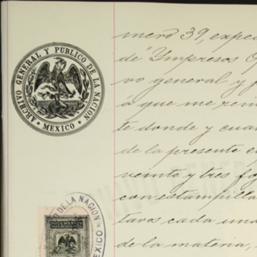 ARCHIVO GENERAL Y PUBLICO DE LA NACION
MEXICO
mero 39, exped
de "Impresos O
vo general y p
a que me remi
te donde y cuan
de la presente c
veinte y tres fo
con estampilla
taros cada una
de la materia,
O DE LA NACION
MEXICO